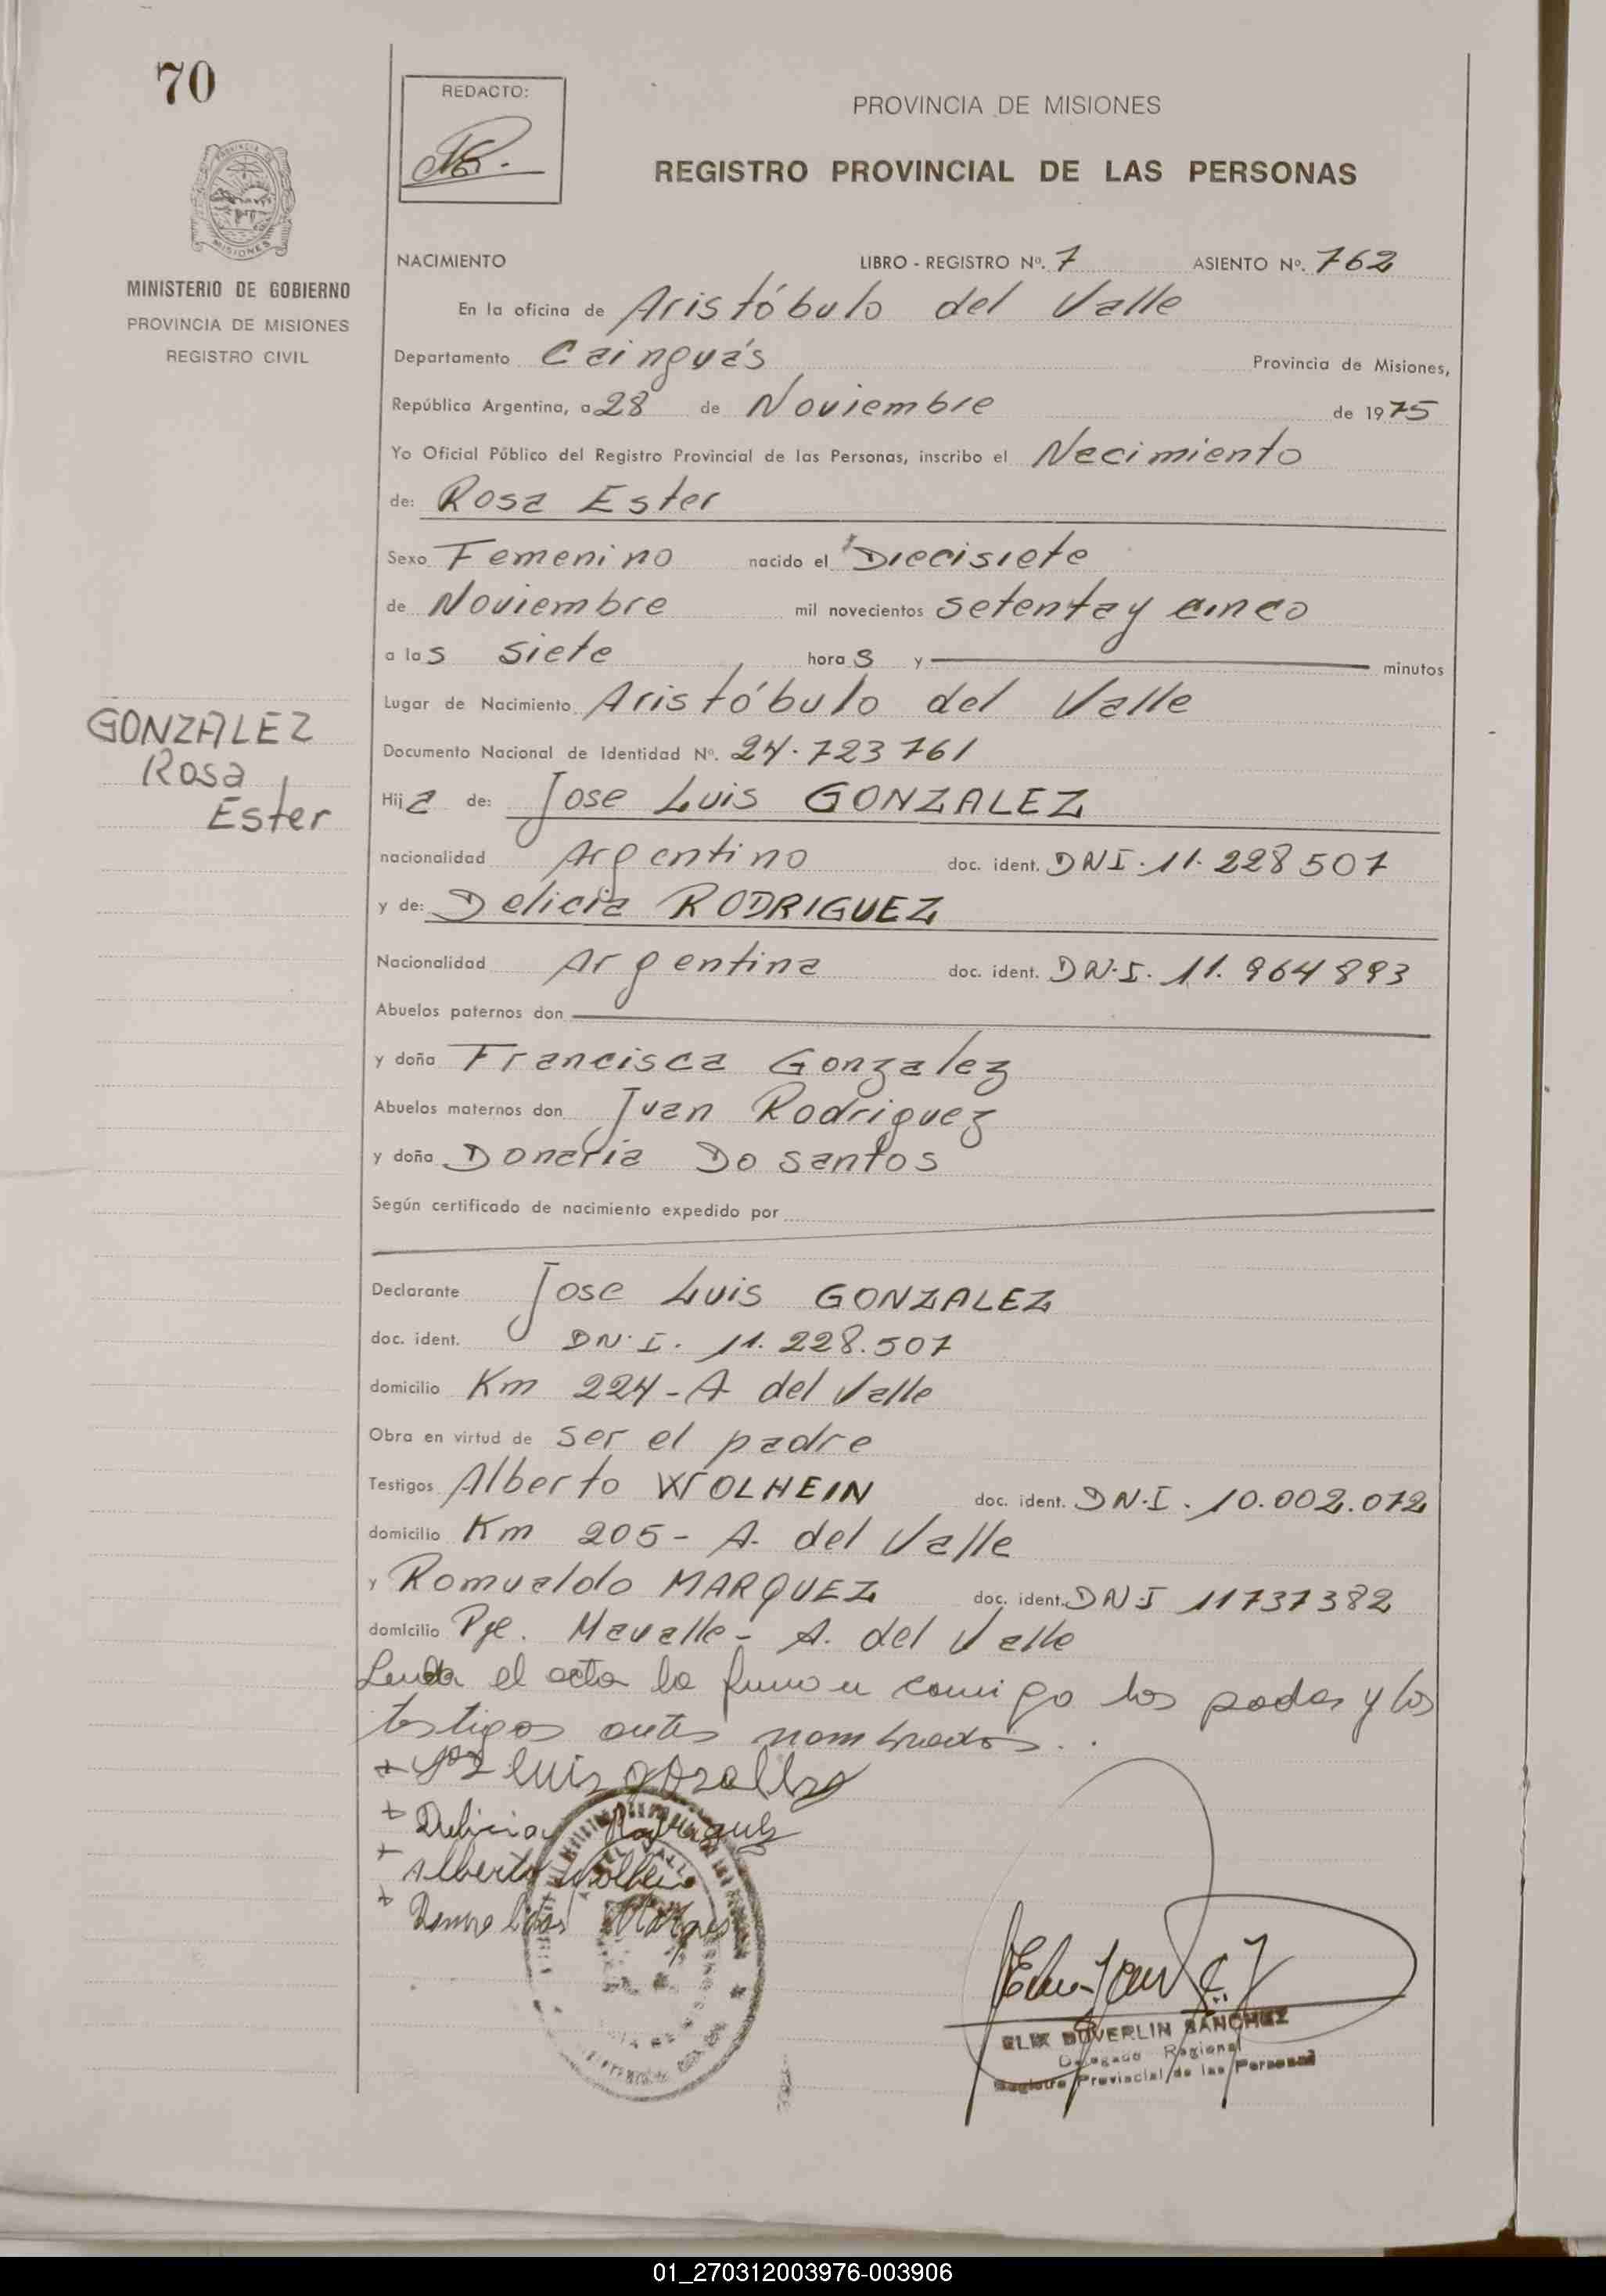 70
REDACTO:
PROVINCIA DE MISIONES
REGISTRO PROVINCIAL DE LAS PERSONAS
MISIONES
MINISTERIO DE GOBIERNO
PROVINCIA DE MISIONES
REGISTRO CIVIL
NACIMIENTO LIBRO - REGISTRO Nº. 7 ASIENTO Nº. 762
En la oficina de Aristóbulo del Valle
Departamento Cainguás Provincia de Misiones,
República Argentina, a 28 de Noviembre de 1975
Yo Oficial Público del Registro Provincial de las Personas, inscribo el Nacimiento
de: Rosa Ester
Sexo Femenino nacido el Diecisiete
de Noviembre mil novecientos setenta y cinco
a las siete horas y minutos
Lugar de Nacimiento Aristóbulo del Valle
GONZALEZ
Rosa
Ester
Documento Nacional de Identidad Nº. 24.723761
Hija de: Jose Luis GONZALEZ
nacionalidad Argentino doc. ident. DNI. 11.228507
y de: Delicia RODRIGUEZ
Nacionalidad Argentina doc. ident. DN.I. 11.964893
Abuelos paternos don
y doña Francisca Gonzalez
Abuelos maternos don Juan Rodriguez
y doña Doneria Do santos
Según certificado de nacimiento expedido por
Declarante Jose Luis GONZALEZ
doc. ident. DN.I. 11.228.507
domicilio Km 224-A del Valle
Obra en virtud de ser el padre
Testigos Alberto WOLHEIN doc. ident. DN.I. 10.002.072
domicilio Km 205- A. del Valle
y Romualdo MARQUEZ doc. ident. DN.I 11737382
domicilio Pje. Mavalle- A. del Valle
el acta la comigo los y los
testigos antes nombrados.
luis
Delicia Rodriguez
Alberto
ELIX DUVERLIN SANCHEZ
Delegado Regional
Registro Provincial de las Personas
01_270312003976-003906